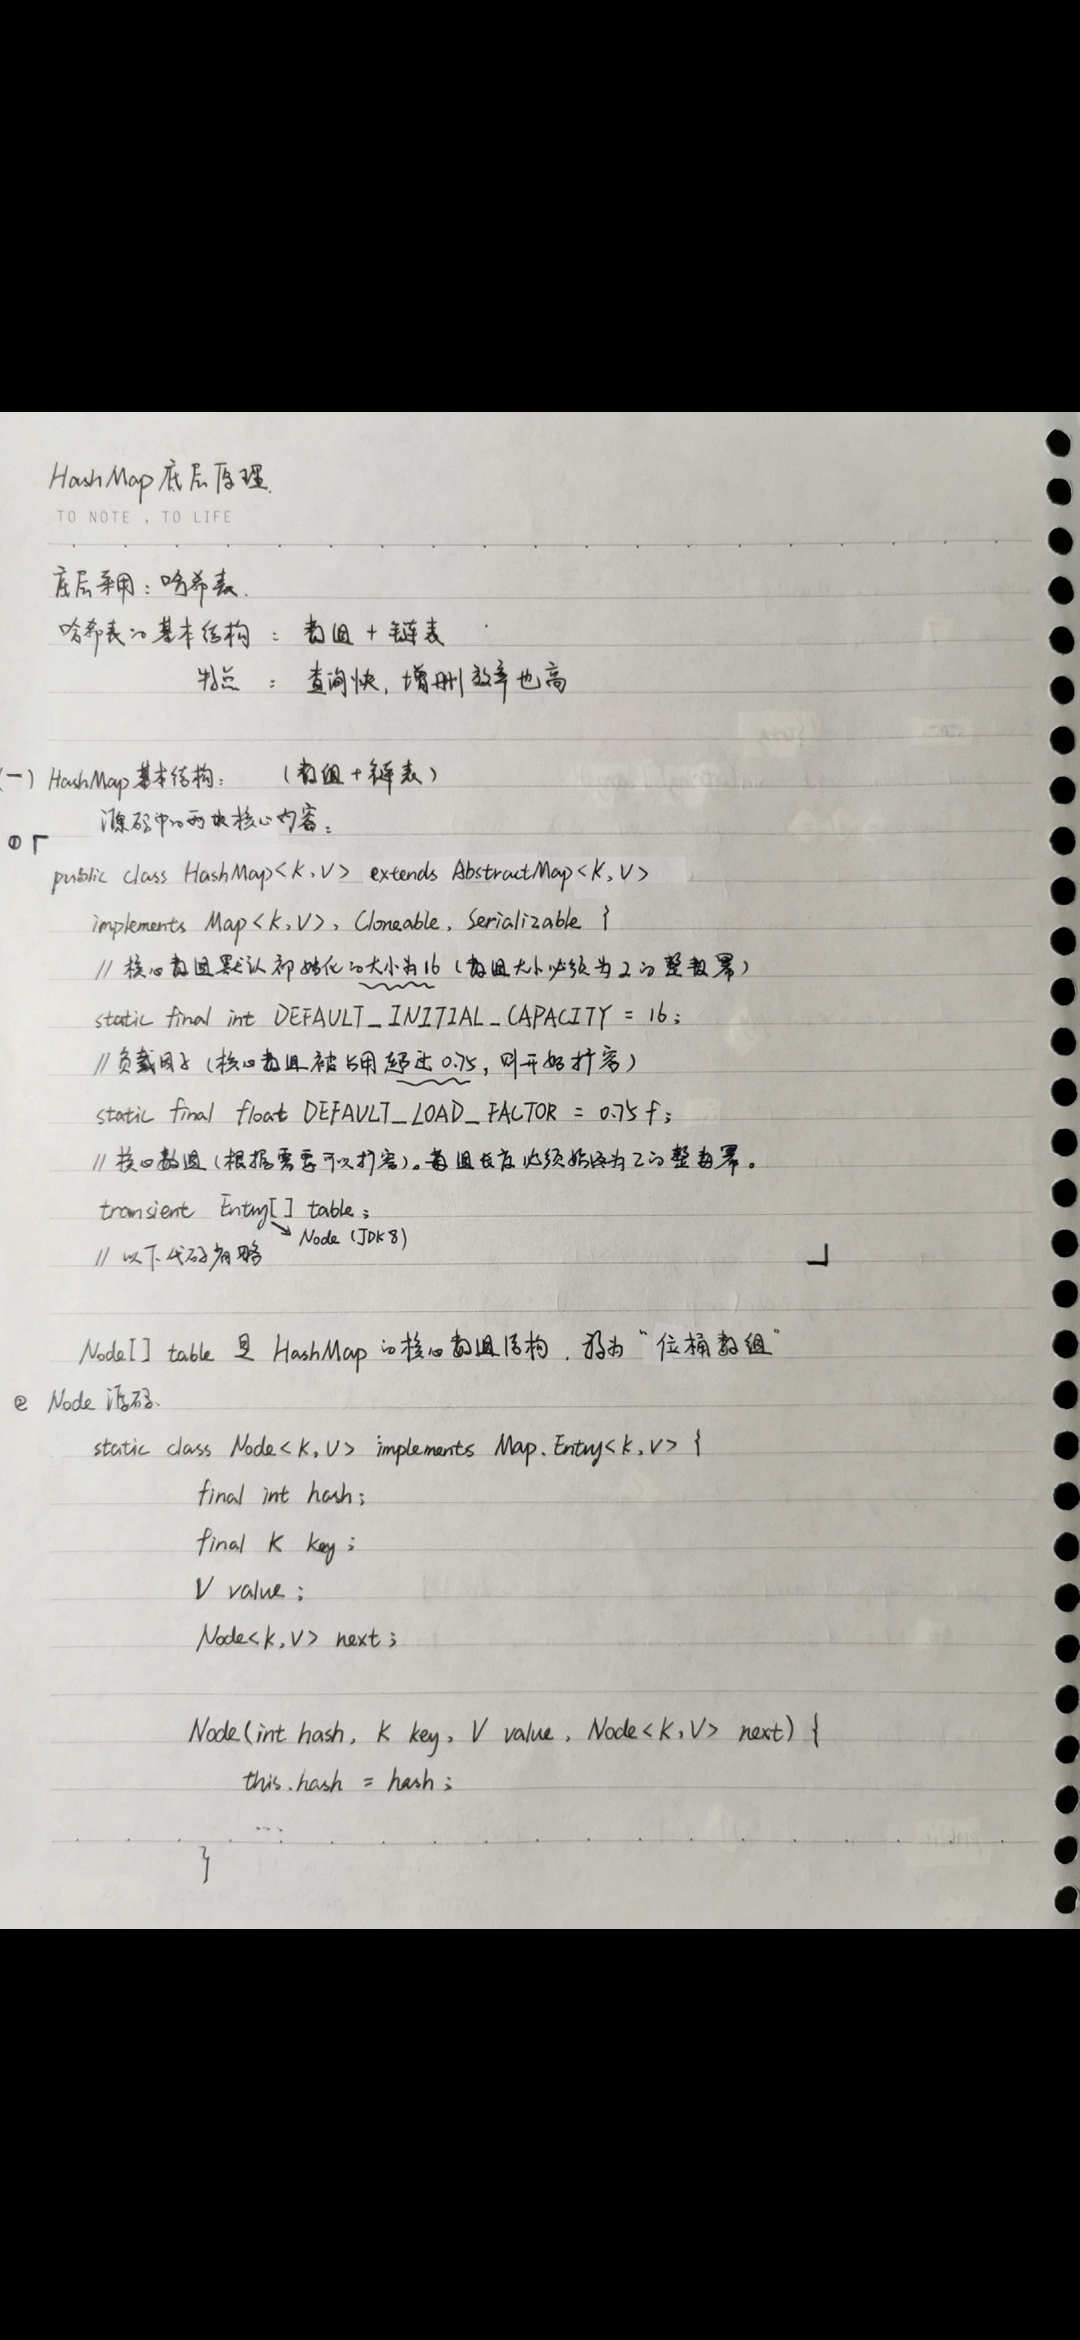 HashMap 底层原理.
TO NOTE , TO LIFE
底层采用：哈希表.
哈希表的基本结构： 数组 + 链表
特点 ： 查询快, 增删效率也高
(一) HashMap 基本结构： （数组 + 链表）
源码中的两块核心内容：
① 「
public class HashMap<K,V> extends AbstractMap<K,V>
implements Map<K,V>, Cloneable, Serializable {
// 核心数组默认初始化的大小为16 (数组大小必须为2的整数幂)
static final int DEFAULT_INITIAL_CAPACITY = 16;
// 负载因子 (核心数组被占用超过0.75, 则开始扩容)
static final float DEFAULT_LOAD_FACTOR = 0.75f;
// 核心数组 (根据需要可以扩容)。数组长度必须始终为2的整数幂。
transient Entry[] table;
Node (JDK8)
// 以下代码省略 」
Node[] table 是 HashMap 的核心数组结构, 称为 “位桶数组”
② Node 源码.
static class Node<K,V> implements Map.Entry<K,V> {
final int hash;
final K key;
V value;
Node<K,V> next;
Node(int hash, K key, V value, Node<K,V> next) {
this.hash = hash;
....
}